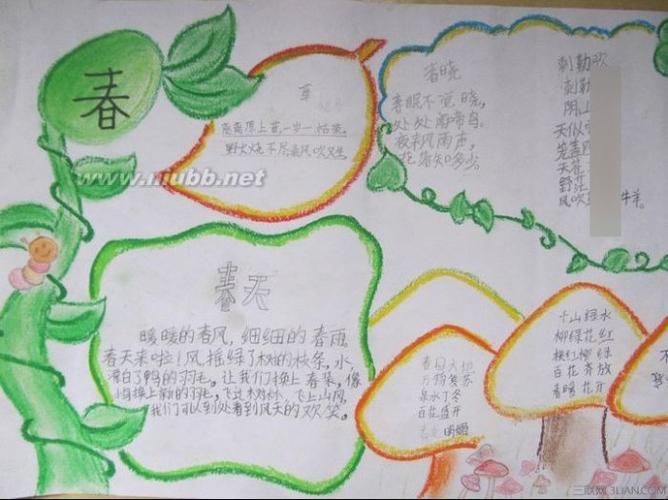 春
草
离离原上草一岁一枯荣
野火烧不尽春风吹又生
www.niubb.net
春晓
春眠不觉晓,
处处闻啼鸟。
夜来风雨声,
花落知多少。
刺勒歌
刺勒
阴山
天似
笼盖四
天苍
野茫
风吹 牛羊。
春天
暖暖的春风,细细的春雨
春天来啦!风摇绿了树的枝条,水
漂白了鸭的羽毛。让我们换上春装,像
换上新的羽毛,飞过树林,飞上山冈,
我们可以到处看到风天的欢笑。
春回大地
万物复苏
泉水丁冬
百花盛开
明媚
千山绿水
柳绿花红
桃红柳绿
百花齐放
春暖花开
三联网 3LIAN.COM